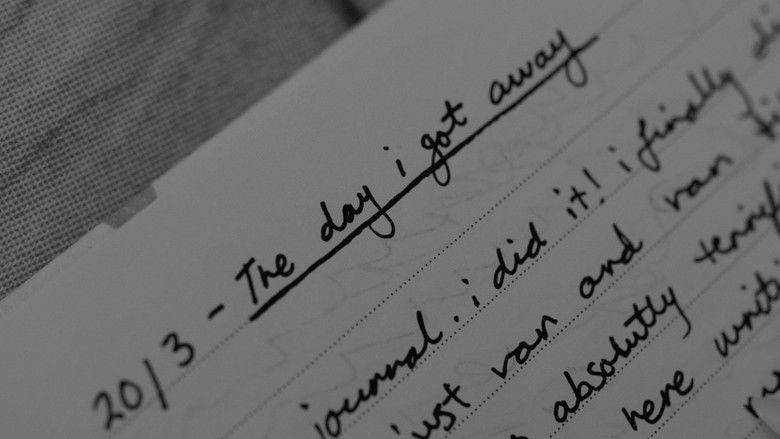 20/3 - The day i got away
journal. i did it! i finally
just ran and ran
absolutely
here